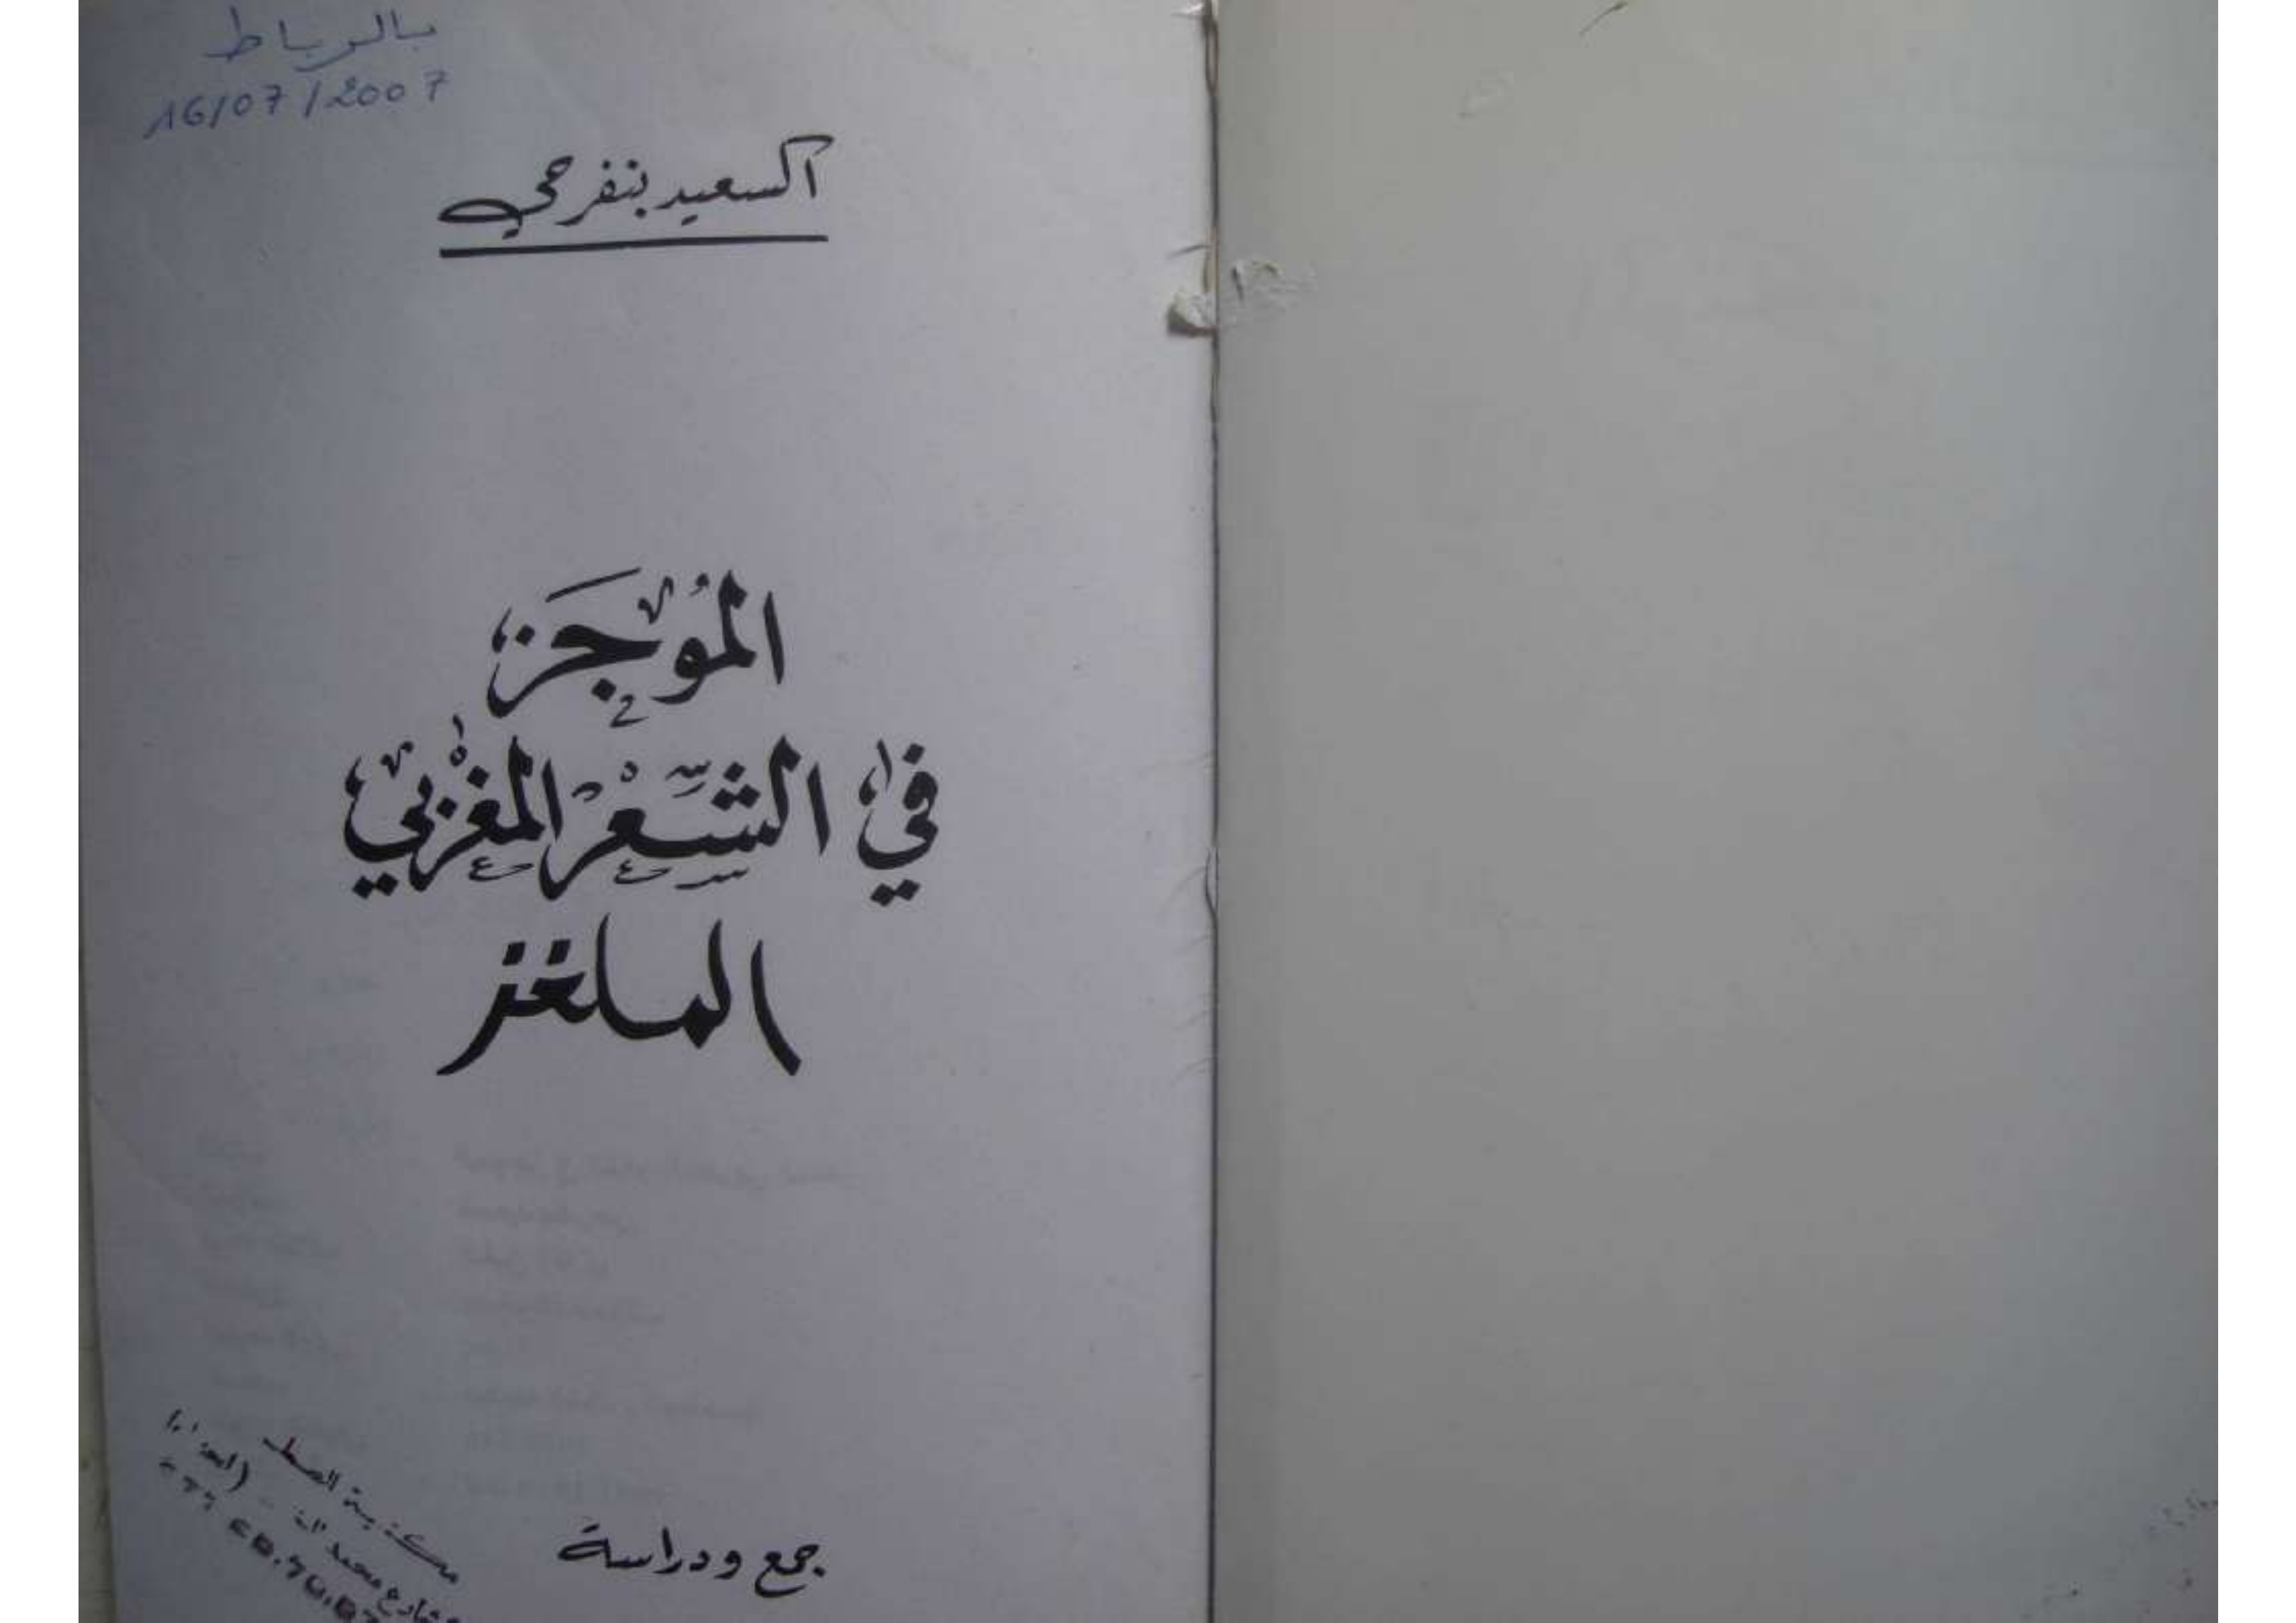 بالرباط
16/07/2007
السعيد بنفرحي
المُوجَز
في الشِّعْر المغْربي
الملغز
جمع ودراسة
مكتبة
شارع محمد